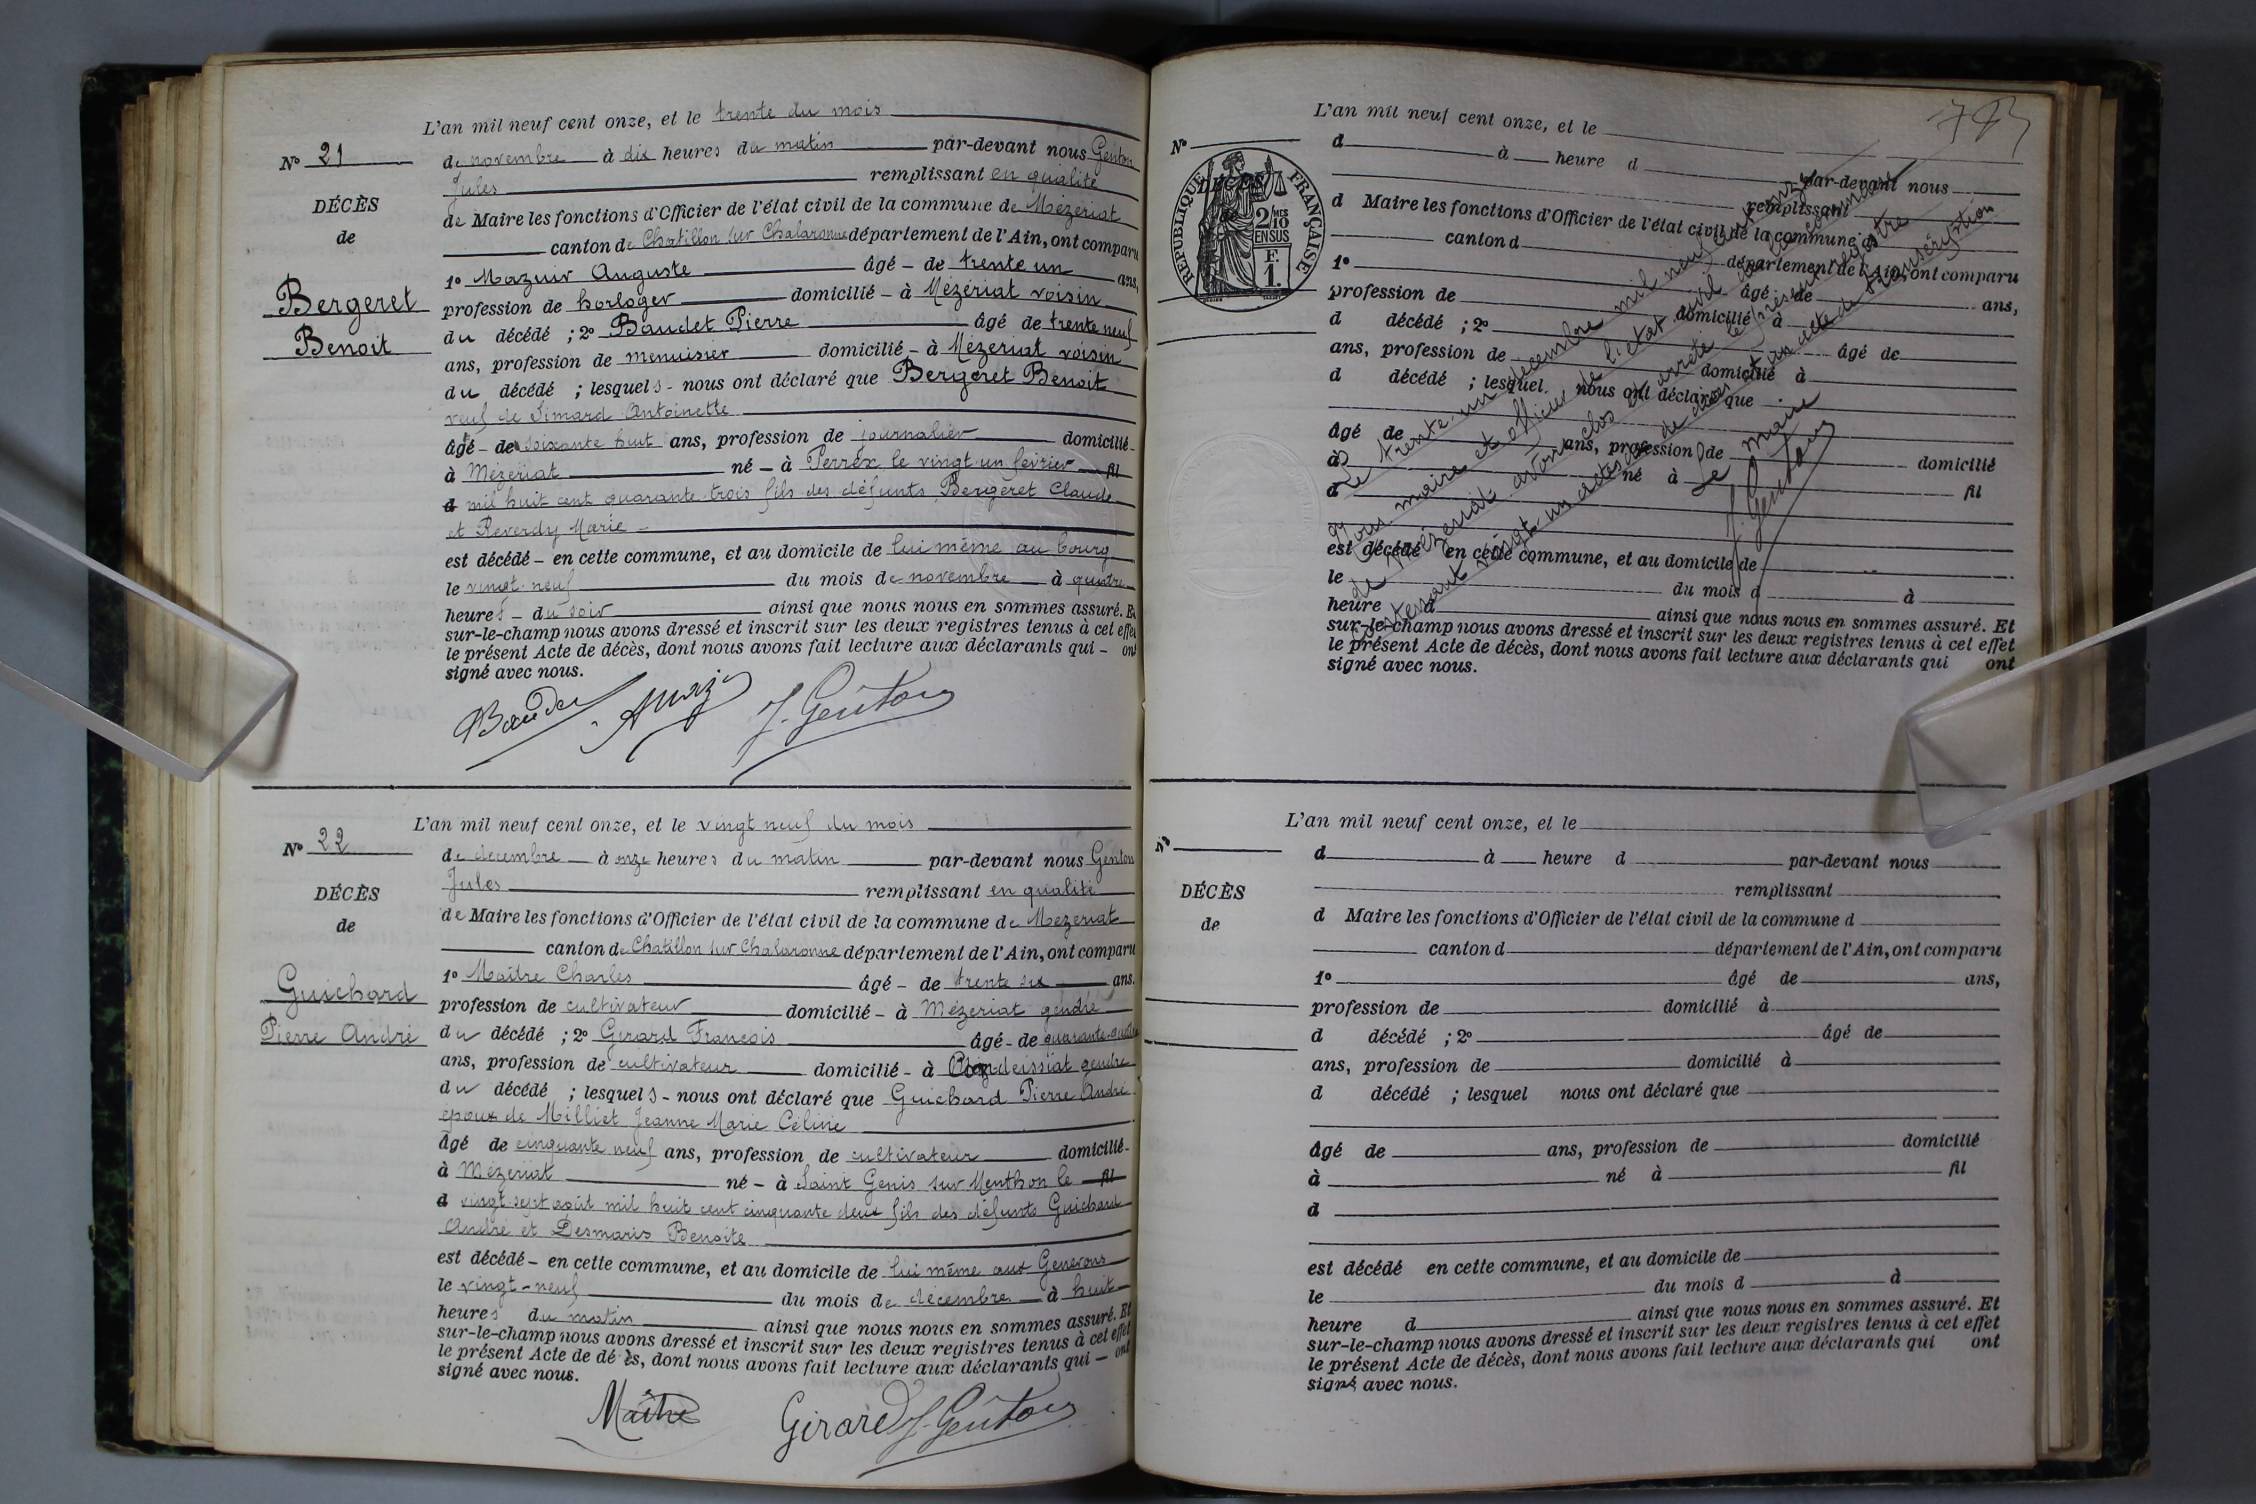 L'an mil neuf cent onze, et le trente du mois
N° 21
de novembre à dix heures du matin par-devant nous Genton
Jules remplissant en qualité
DÉCÈS
de Maire les fonctions d'Officier de l'état civil de la commune de Mézériat
de
canton de Chatillon sur Chalaronne département de l'Ain, ont comparu
1° Mazuir Auguste âgé - de trente un ans,
Bergeret
profession de horloger domicilié - à Mézériat voisin
Benoit
du décédé ; 2° Baudet Pierre âgé de trente neuf
ans, profession de menuisier domicilié - à Mézériat voisin
du décédé ; lesquels - nous ont déclaré que Bergeret Benoit
veuf de Simard Antoinette
âgé - de soixante huit ans, profession de journalier domicilié -
à Mézériat né - à Perrex le vingt un février fil
d mil huit cent quarante trois fils des défunts Bergeret Claude
et Reverdy Marie -
est décédé - en cette commune, et au domicile de lui même au bourg
le vingt-neuf du mois de novembre à quatre
heures - du soir ainsi que nous nous en sommes assuré. Et
sur-le-champ nous avons dressé et inscrit sur les deux registres tenus à cet effet
le présent Acte de décès, dont nous avons fait lecture aux déclarants qui - ont
signé avec nous.
Baudet J. Genton
L'an mil neuf cent onze, et le vingt neuf du mois
N° 22
de decembre à onze heures du matin par-devant nous Genton
Jules remplissant en qualité
DÉCÈS
de Maire les fonctions d'Officier de l'état civil de la commune de Mézériat
de
canton de Chatillon sur Chalaronne département de l'Ain, ont comparu
1° Maître Charles âgé - de trente six ans.
Guichard
profession de cultivateur domicilié - à Mézériat gendre
Pierre André
du décédé ; 2° Girard François âgé - de quarante-quatre
ans, profession de cultivateur domicilié - à gendre
du décédé ; lesquels - nous ont déclaré que Guichard Pierre André
époux de Milliet Jeanne Marie Céline
âgé de cinquante neuf ans, profession de cultivateur domicilié -
à Mézériat né - à Saint Genis sur Menthon le fil
d vingt sept août mil huit cent cinquante deux fils des défunts Guichard
André et Desmaris Benoite
est décédé - en cette commune, et au domicile de lui même aux Generons
le vingt-neuf du mois de décembre à huit
heures du matin ainsi que nous nous en sommes assuré. Et
sur-le-champ nous avons dressé et inscrit sur les deux registres tenus à cet effet
le présent Acte de dé ès, dont nous avons fait lecture aux déclarants qui - ont
signé avec nous.
Maître Girard J. Genton
L'an mil neuf cent onze, et le
N°
d à heure d par-devant nous
remplissant
DÉCÈS
RÉPUBLIQUE FRANÇAISE
2/10MES
EN SUS
F.
1.
d Maire les fonctions d'Officier de l'état civil de la commune d
canton d département de l'Ain, ont comparu
1° âgé de ans,
profession de domicilié à
d décédé ; 2° âgé de
ans, profession de domicilié à
d décédé ; lesquel nous ont déclaré que
âgé de ans, profession de domicilié
à né à fil
d
est décédé en cette commune, et au domicile de
le du mois d à
heure d ainsi que nous nous en sommes assuré. Et
sur-le-champ nous avons dressé et inscrit sur les deux registres tenus à cet effet
le présent Acte de décès, dont nous avons fait lecture aux déclarants qui ont
signé avec nous.
Le trente un décembre mil neuf cent onze
Nous maire et officier de l'état civil de la commune
de Mézériat avons clos et arrêté le présent registre
contenant vingt-deux actes de décès et un acte de transcription
Le maire
J. Genton
L'an mil neuf cent onze, et le
N°
d à heure d par-devant nous
remplissant
DÉCÈS
d Maire les fonctions d'Officier de l'état civil de la commune d
de
canton d département de l'Ain, ont comparu
1° âgé de ans,
profession de domicilié à
d décédé ; 2° âgé de
ans, profession de domicilié à
d décédé ; lesquel nous ont déclaré que
âgé de ans, profession de domicilié
à né à fil
d
est décédé en cette commune, et au domicile de
le du mois d à
heure d ainsi que nous nous en sommes assuré. Et
sur-le-champ nous avons dressé et inscrit sur les deux registres tenus à cet effet
le présent Acte de décès, dont nous avons fait lecture aux déclarants qui ont
signé avec nous.